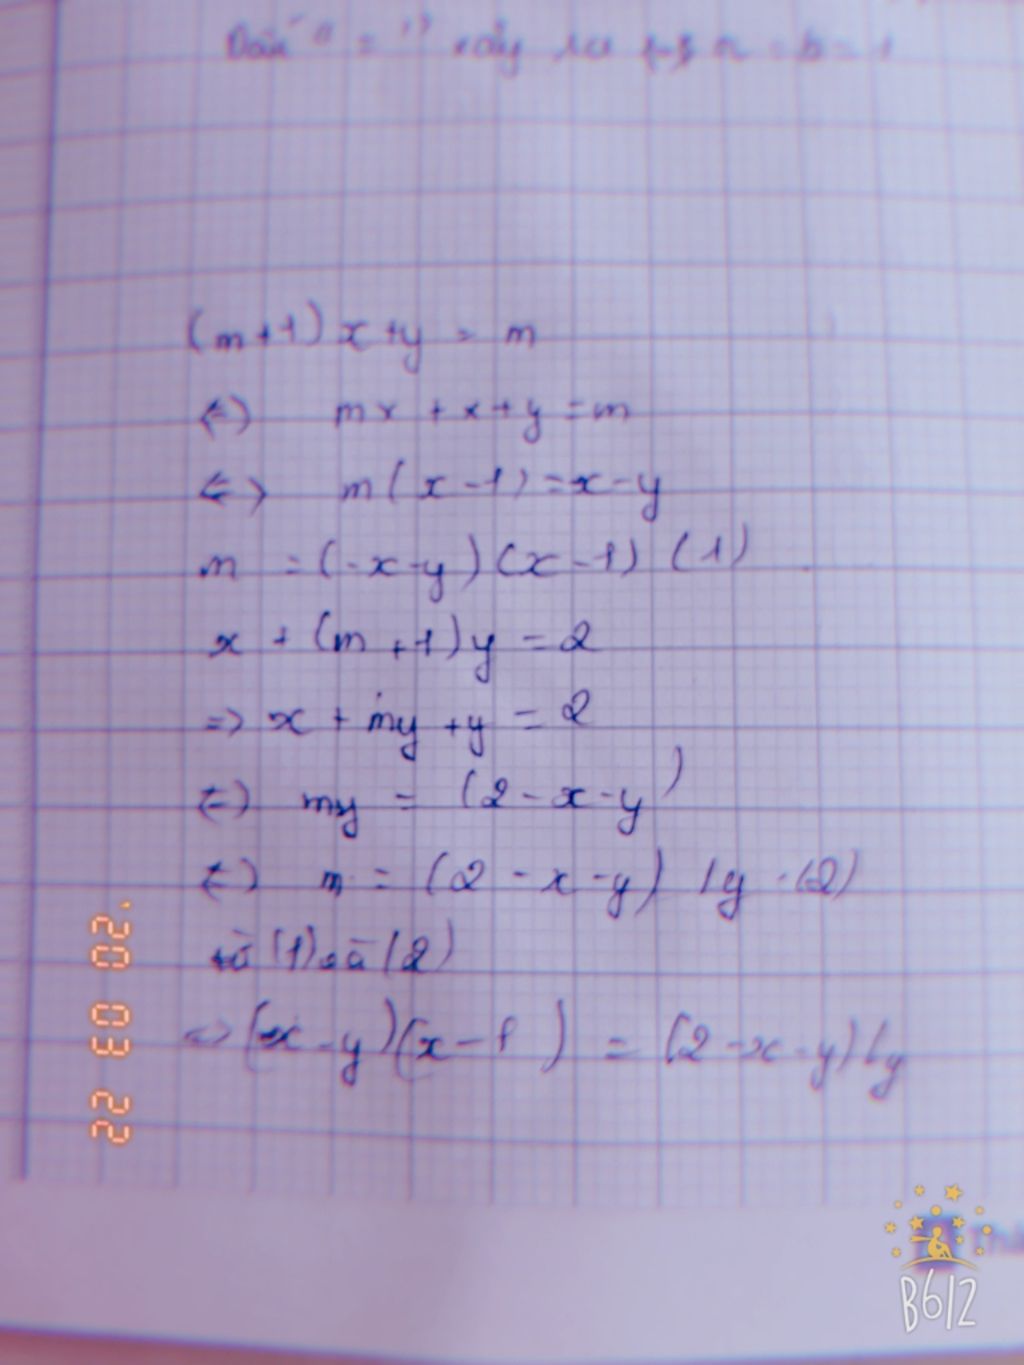 Dấu " = " xảy ra (=) a = b = 1
(m+1) x+y = m
(=) mx + x + y = m
<=> m(x-1) = x-y
m = (-x-y) (x-1) (1)
x + (m+1)y = 2
=> x + my + y = 2
(=) my = (2-x-y)
(=) m = (2-x-y) /y (2)
từ (1) và (2)
=> (-x-y)(x-1) = (2-x-y)/y
'20 03 22
B612